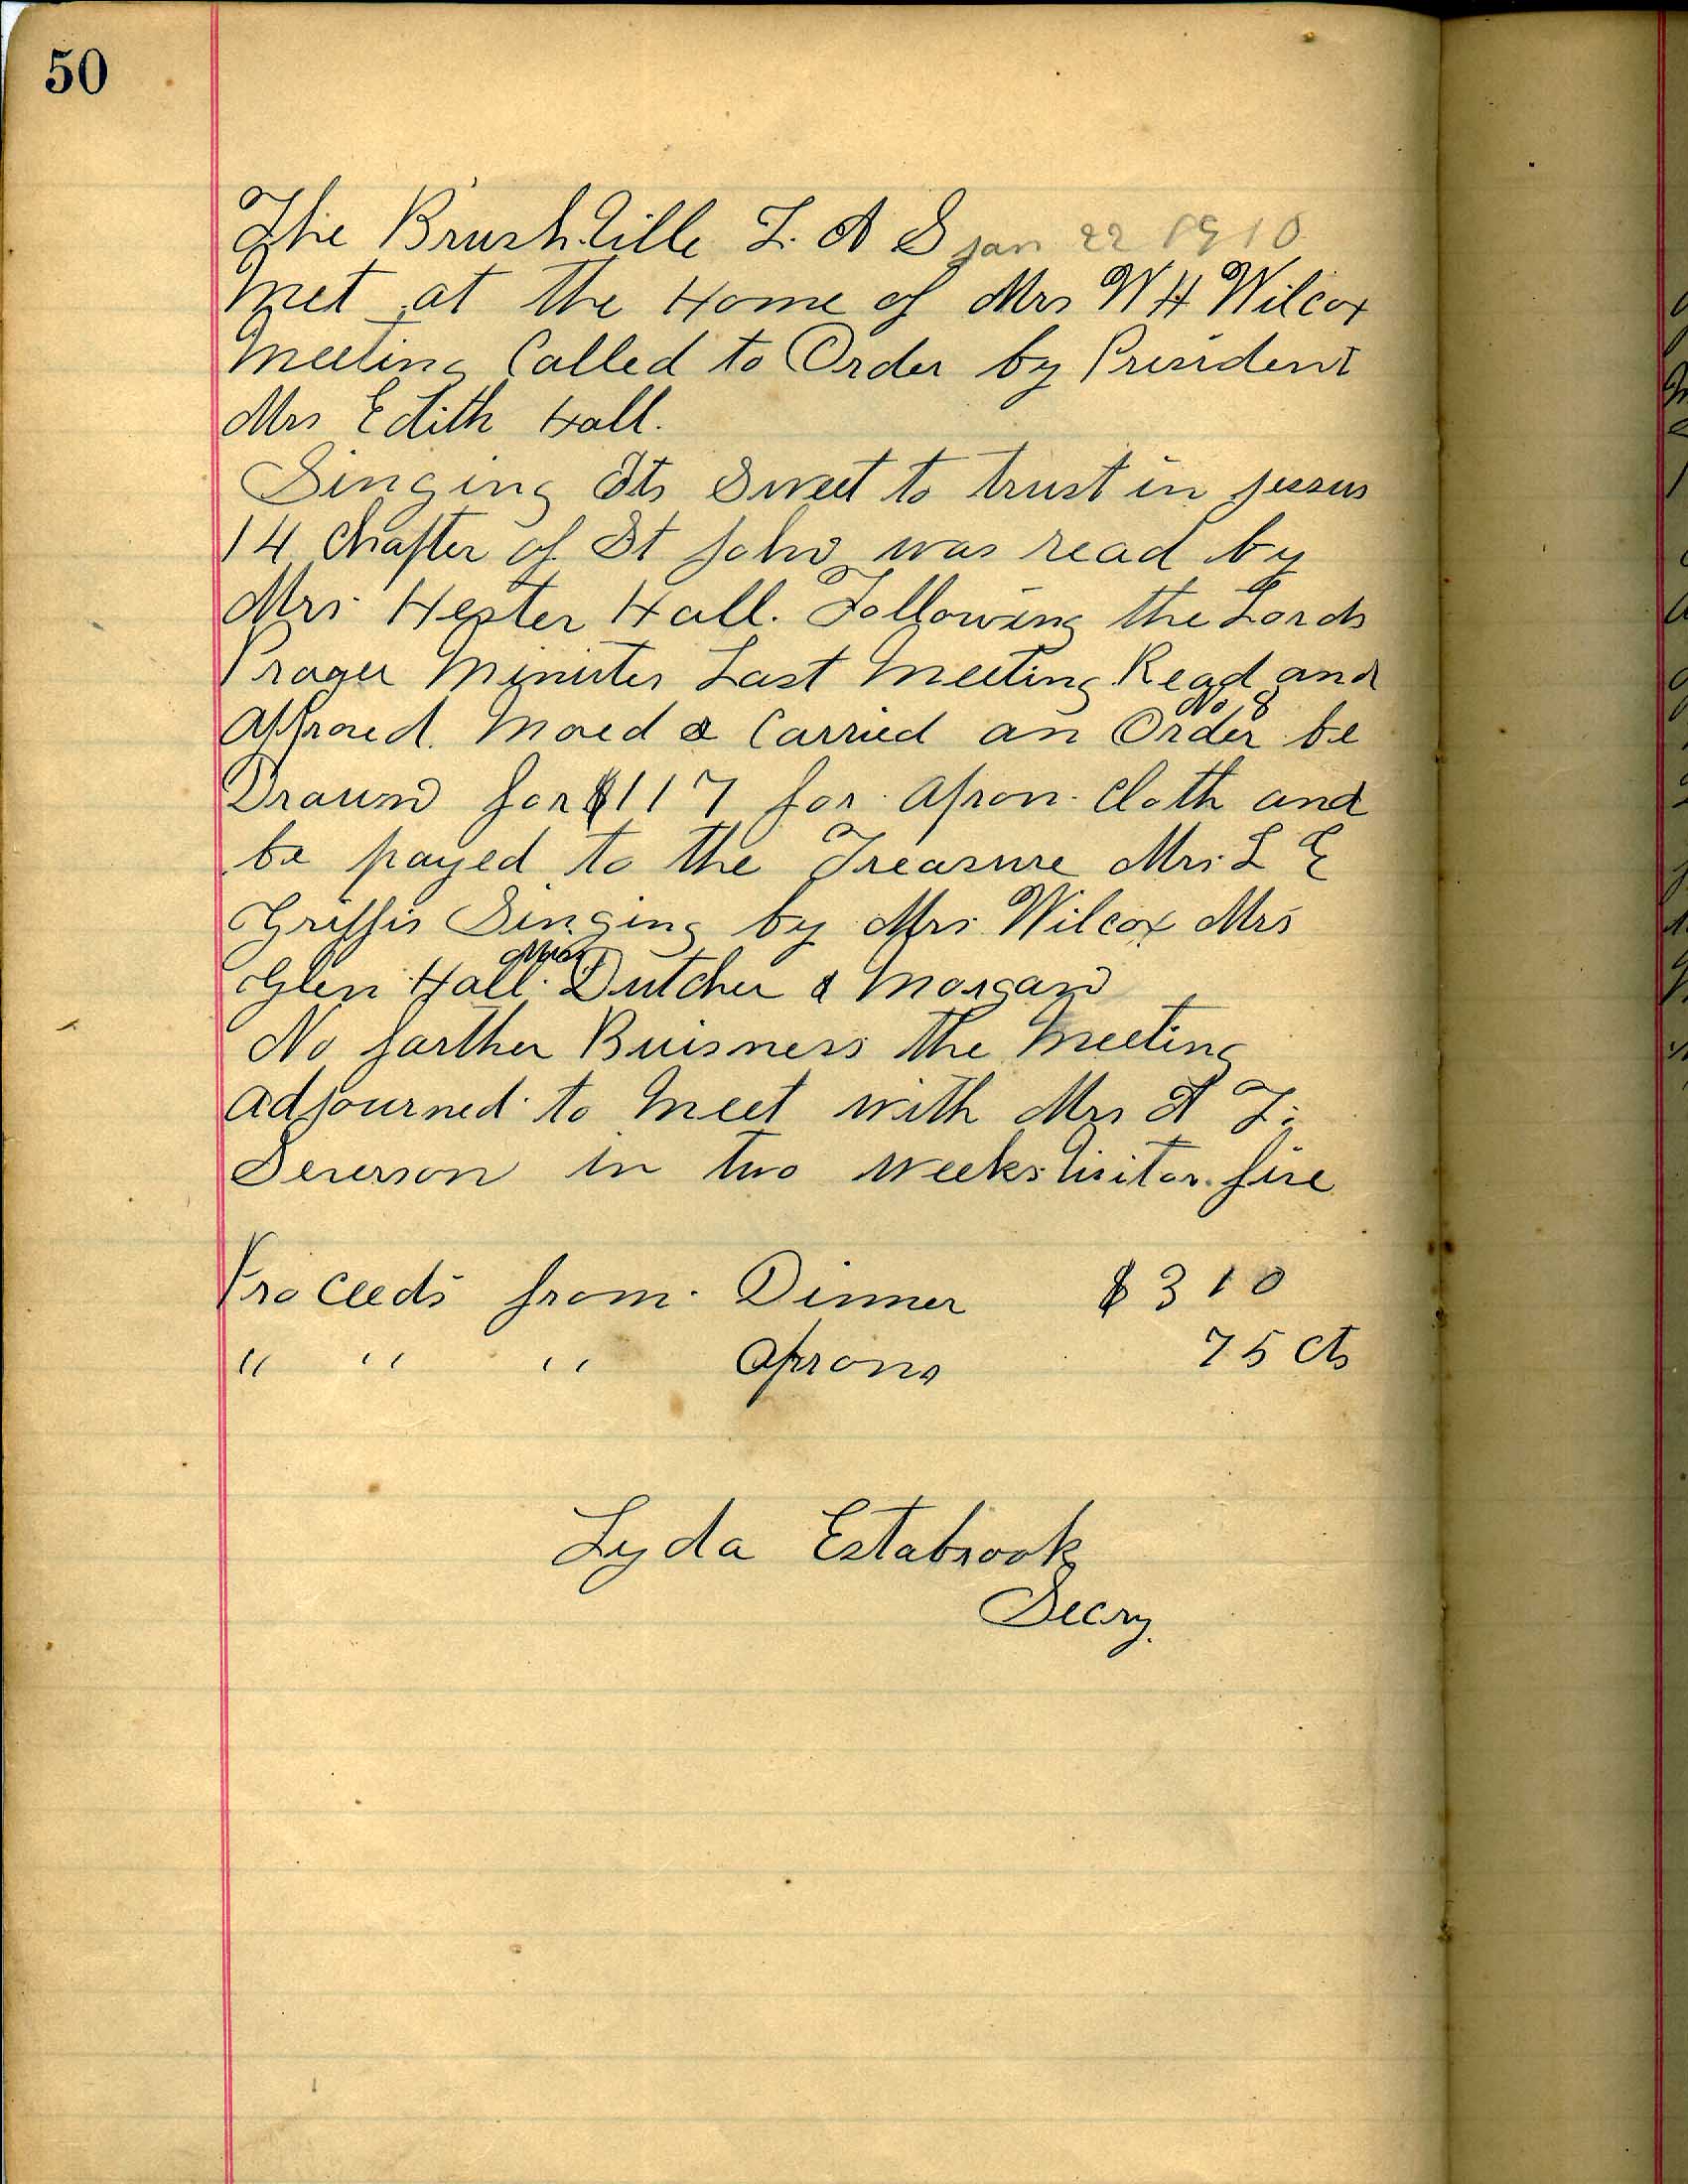 50
The Brushville L. A S Jan 22 1910
Met at the Home of Mrs W H Wilcox
Meeting Called to Order by President
Mrs Edith Hall.
Singing Its Sweet to trust in Jesus
14 Chapter of St John was read by
Mrs Hester Hall. Following the Lords
Prayer Minutes Last Meeting Read and
No 8
approved. Moved & Carried an Order be
Drawn for $1 17 for apron cloth and
be payed to the Treasure Mrs L E
Griffis Singing by Mrs Wilcox Mrs
Mrs
Glen Hall. Dutcher & Morgan
No farther Buisness the Meeting
adjourned to Meet with Mrs A
Severson in two weeks Visitors five
Proceeds from Dinner $ 3 10
" " " Aprons 75 cts
Lyda Estabrook
Secry.